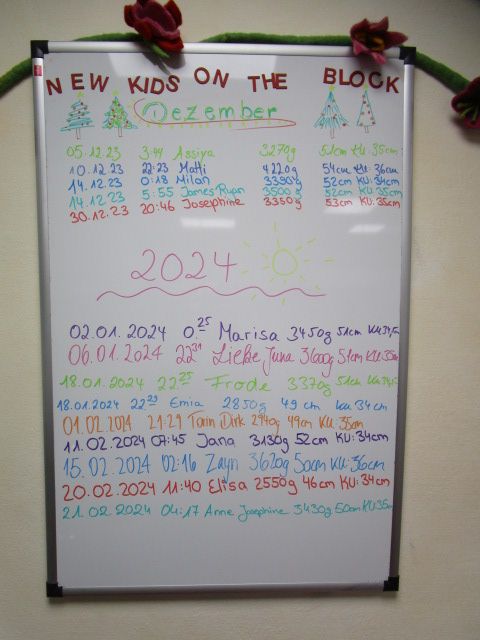 NEW KIDS ON THE BLOCK
Dezember
05.12.23 3:44 Assiya 3270g 51cm KU: 35cm
10.12.23 22:23 Matti 4220g 54cm KU: 36cm
14.12.23 0:18 Milan 3390g 52cm KU: 34cm
14.12.23 5:55 James Ryan 3500g 52cm KU: 35cm
30.12.23 20:46 Josephine 3350g 53cm KU: 35cm
2024
02.01.2024 0 25 Marisa 3450g 51cm KU:
06.01.2024 22 31 Lieke Juna 3600g 51cm KU: 35cm
18.01.2024 22 25 Frode 3370g 51cm KU:
18.01.2024 22 29 Emia 2850g 49cm ku 34cm
01.02.2024 21:29 Dirk 2940g 49cm KU: 35cm
11.02.2024 07:45 Jana 3130g 52cm KU: 34cm
15.02.2024 02:16 Zayn 3620g 50cm KU: 36cm
20.02.2024 11:40 Elisa 2550g 46cm KU: 34cm
21.02.2024 04:17 Anne Josephine 3430g 50cm KU: 35cm